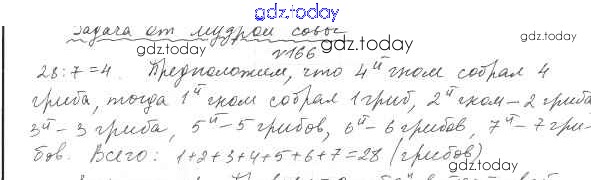 gdz.today
Задача от мудрой совы
gdz.today
gdz.today
№166
28:7=4. Предположим, что 4й гном собрал 4
гриба, тогда 1й гном собрал 1 гриб, 2й гном – 2 гриба
3й – 3 гриба, 5й – 5 грибов, 6й – 6 грибов, 7й – 7 гри-
бов. Всего: 1+2+3+4+5+6+7=28 (грибов)
gdz.today
gdz.today